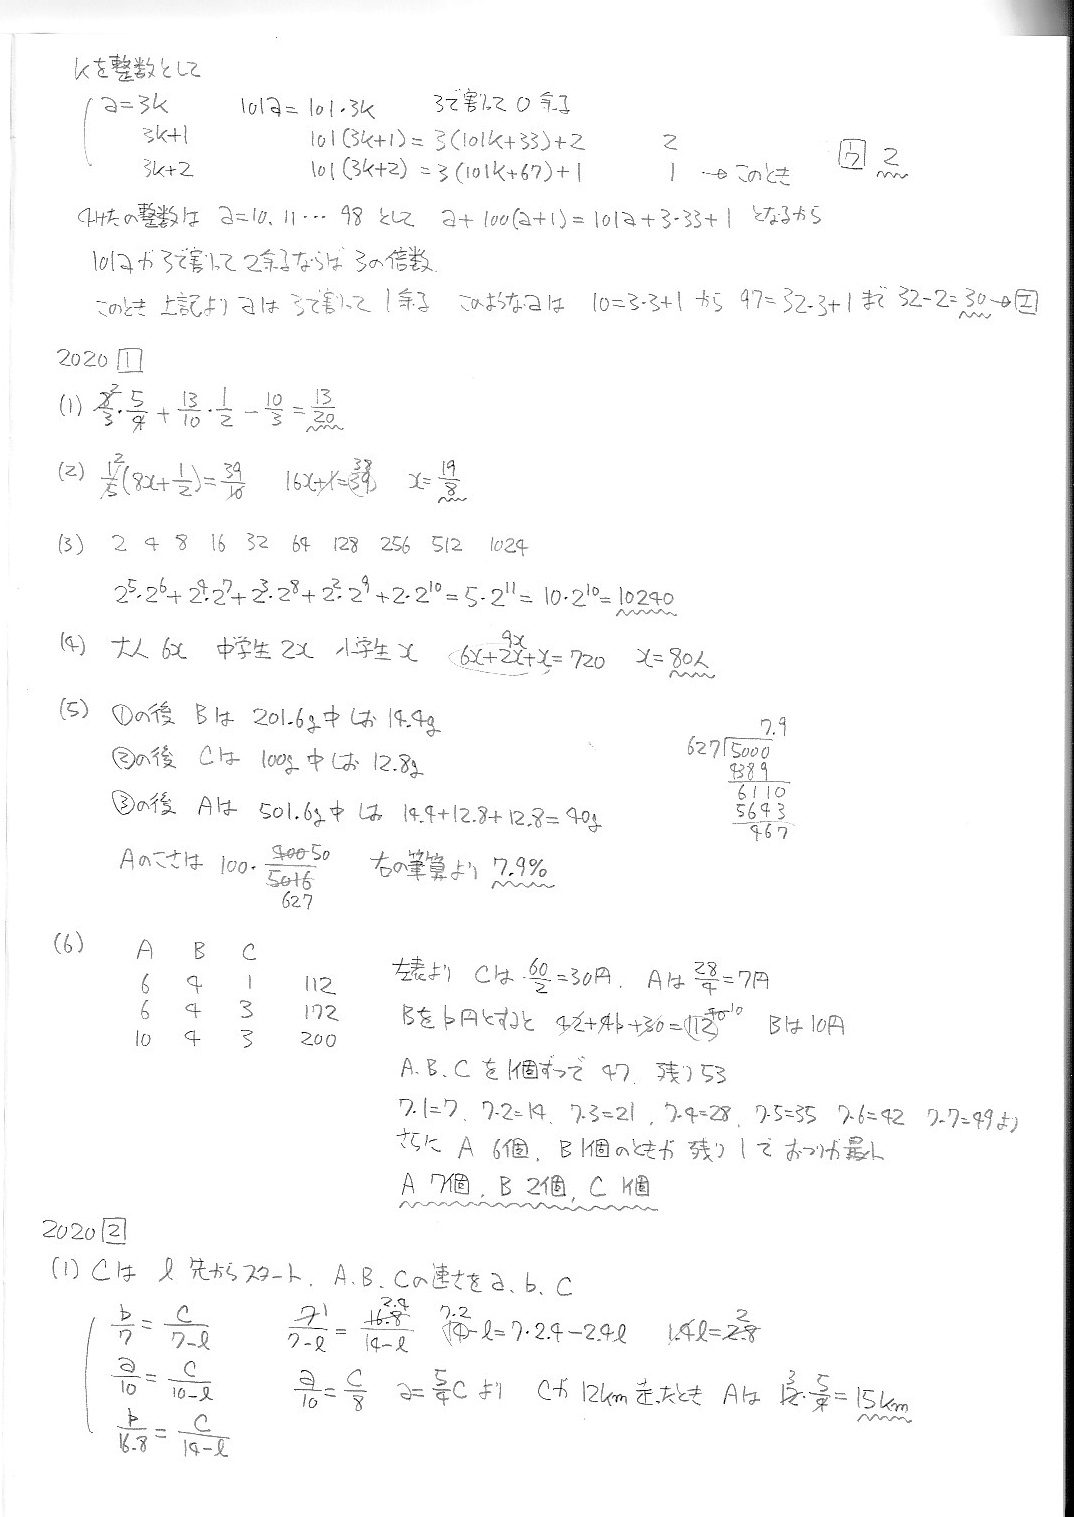 kを整数として
a=3k 101a=101・3k 3で割って0余る
3k+1 101(3k+1)=3(101k+33)+2 2
3k+2 101(3k+2)=3(101k+67)+1 1 → このとき ウ 2
4けたの整数は a=10, 11 … 98 として a+100(a+1)=101a+3・33+1 となるから
101aが3で割って2余るならば 3の倍数
このとき 上記より aは 3で割って1余る このようなaは 10=3・3+1 から 97=32・3+1 まで 32-2=30→エ
2020 1
(1) 8/3・5/4 + 13/10・1/2 - 10/3 = 13/20
(2) 12/5(8x+1/2)=39/10 16x+1=39 38 x=19/8
(3) 2 4 8 16 32 64 128 256 512 1024
2⁵・2⁶+2⁴・2⁷+2³・2⁸+2²・2⁹+2・2¹⁰=5・2¹¹=10・2¹⁰=10240
(4) 大人 6x 中学生 2x 小学生 x 6x+2x+x=720 9x x=80人
(5) ①の後 Bは 201.6g中しお 14.4g
②の後 Cは 100g中しお 12.8g
③の後 Aは 501.6g中しお 14.4+12.8+12.8=40g
Aのこさは 100・400/5016 50 627 右の筆算より 7.9%
7.9
627 5000
4389
6110
5643
467
(6) A B C
6 4 1 112
6 4 3 172
10 4 3 200
左表より Cは 60/2=30円. Aは 28/4=7円
Bをb円とすると 42+4b+30=112 40 10 Bは10円
A.B.Cを1個ずつで 47 残り53
7・1=7, 7・2=14, 7・3=21, 7・4=28, 7・5=35 7・6=42 7・7=49より
さらに A 6個, B 1個のときが 残り1で おつりが最小
A 7個, B 2個, C 1個
2020 2
(1) Cは l 先からスタート. A.B.Cの速さをa.b.c
b/7=c/(7-l) 7/(7-l)=16.8/(14-l) 1 2.4 14-l=7・2.4-2.4l 7.2 1.4l=2.8 2
a/10=c/(10-l) a/10=c/8 a=5/4c より Cが 12km走ったとき Aは 12・5/4=15km 3
b/16.8=c/(14-l)